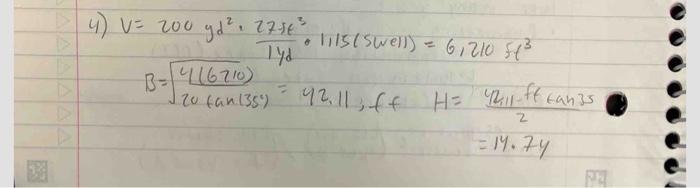 4) V = 200 yd². 27ft³/1yd • 1.15 (swell) = 6,210 ft³
B = √(4(6210)/20 tan(35°)) = 42.11, ft H = 42.11 ft tan 35/2
= 14.74